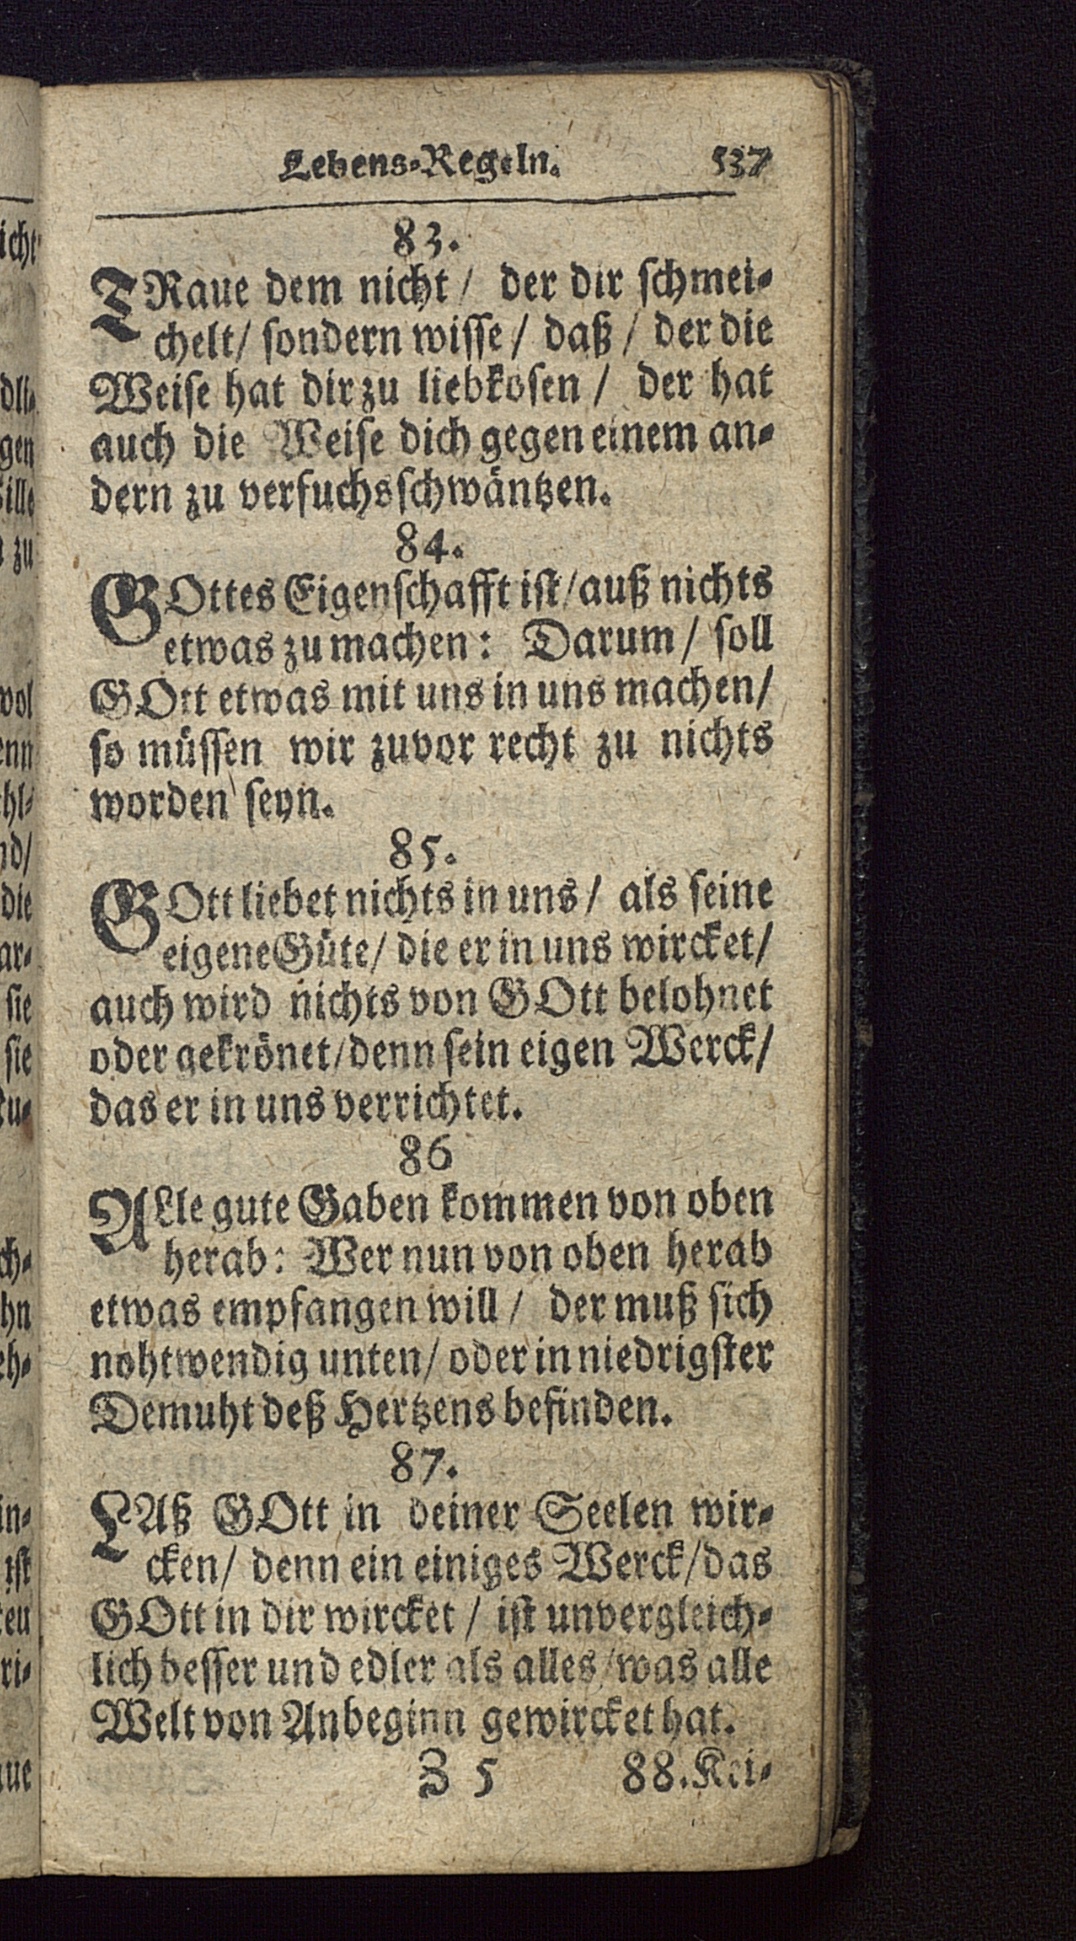 Lebens-Regeln. 537
83.
TRaue dem nicht / der dir schmei-
chelt / sondern wisse / daß / der die
Weise hat dir zu liebkosen / der hat
auch die Weise dich gegen einem an-
dern zu verfuchsschwäntzen.
84.
GOttes Eigenschafft ist / auß nichts
etwas zu machen: Darum / soll
GOtt etwas mit uns in uns machen /
so müssen wir zuvor recht zu nichts
worden seyn.
85.
GOtt liebet nichts in uns / als seine
eigene Güte / die er in uns wircket /
auch wird nichts von GOtt belohnet
oder gekrönet / denn sein eigen Werck /
das er in uns verrichtet.
86
ALle gute Gaben kommen von oben
herab: Wer nun von oben herab
etwas empfangen will / der muß sich
nohtwendig unten / oder in niedrigster
Demuht deß Hertzens befinden.
87.
LAß GOtt in deiner Seelen wir-
cken / denn ein einiges Werck / das
GOtt in dir wircket / ist unvergleich-
lich besser und edler als alles / was alle
Welt von Anbeginn gewircket hat.
Z 5 88. Kei-